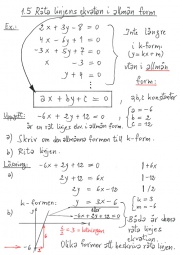 1.5 Räta linjens ekvation i allmän form
Ex.:
2x + 3y - 8 = 0
4x - 6y + 1 = 0
-3x + 5y + 7 = 0
x - 3 = 0
y + 4 = 0
Inte längre
i k-form:
(y = kx + m)
utan i allmän
form:
ax + by + c = 0
a, b, c konstanter
Uppgift: -6x + 2y + 12 = 0
är en rät linjes ekv. i allmän form.
a) Skriv om den allmänna formen till k-form.
b) Rita linjen.
Lösning:
a) -6x + 2y + 12 = 0 | +6x
2y + 12 = 6x | -12
2y = 6x - 12 | /2
k-formen: y = 3x - 6
k = 3
m = -6
b)
-6x + 2y + 12 = 0
Båda är denna
räta linjes
ekvation.
Olika former att beskriva räta linjen.